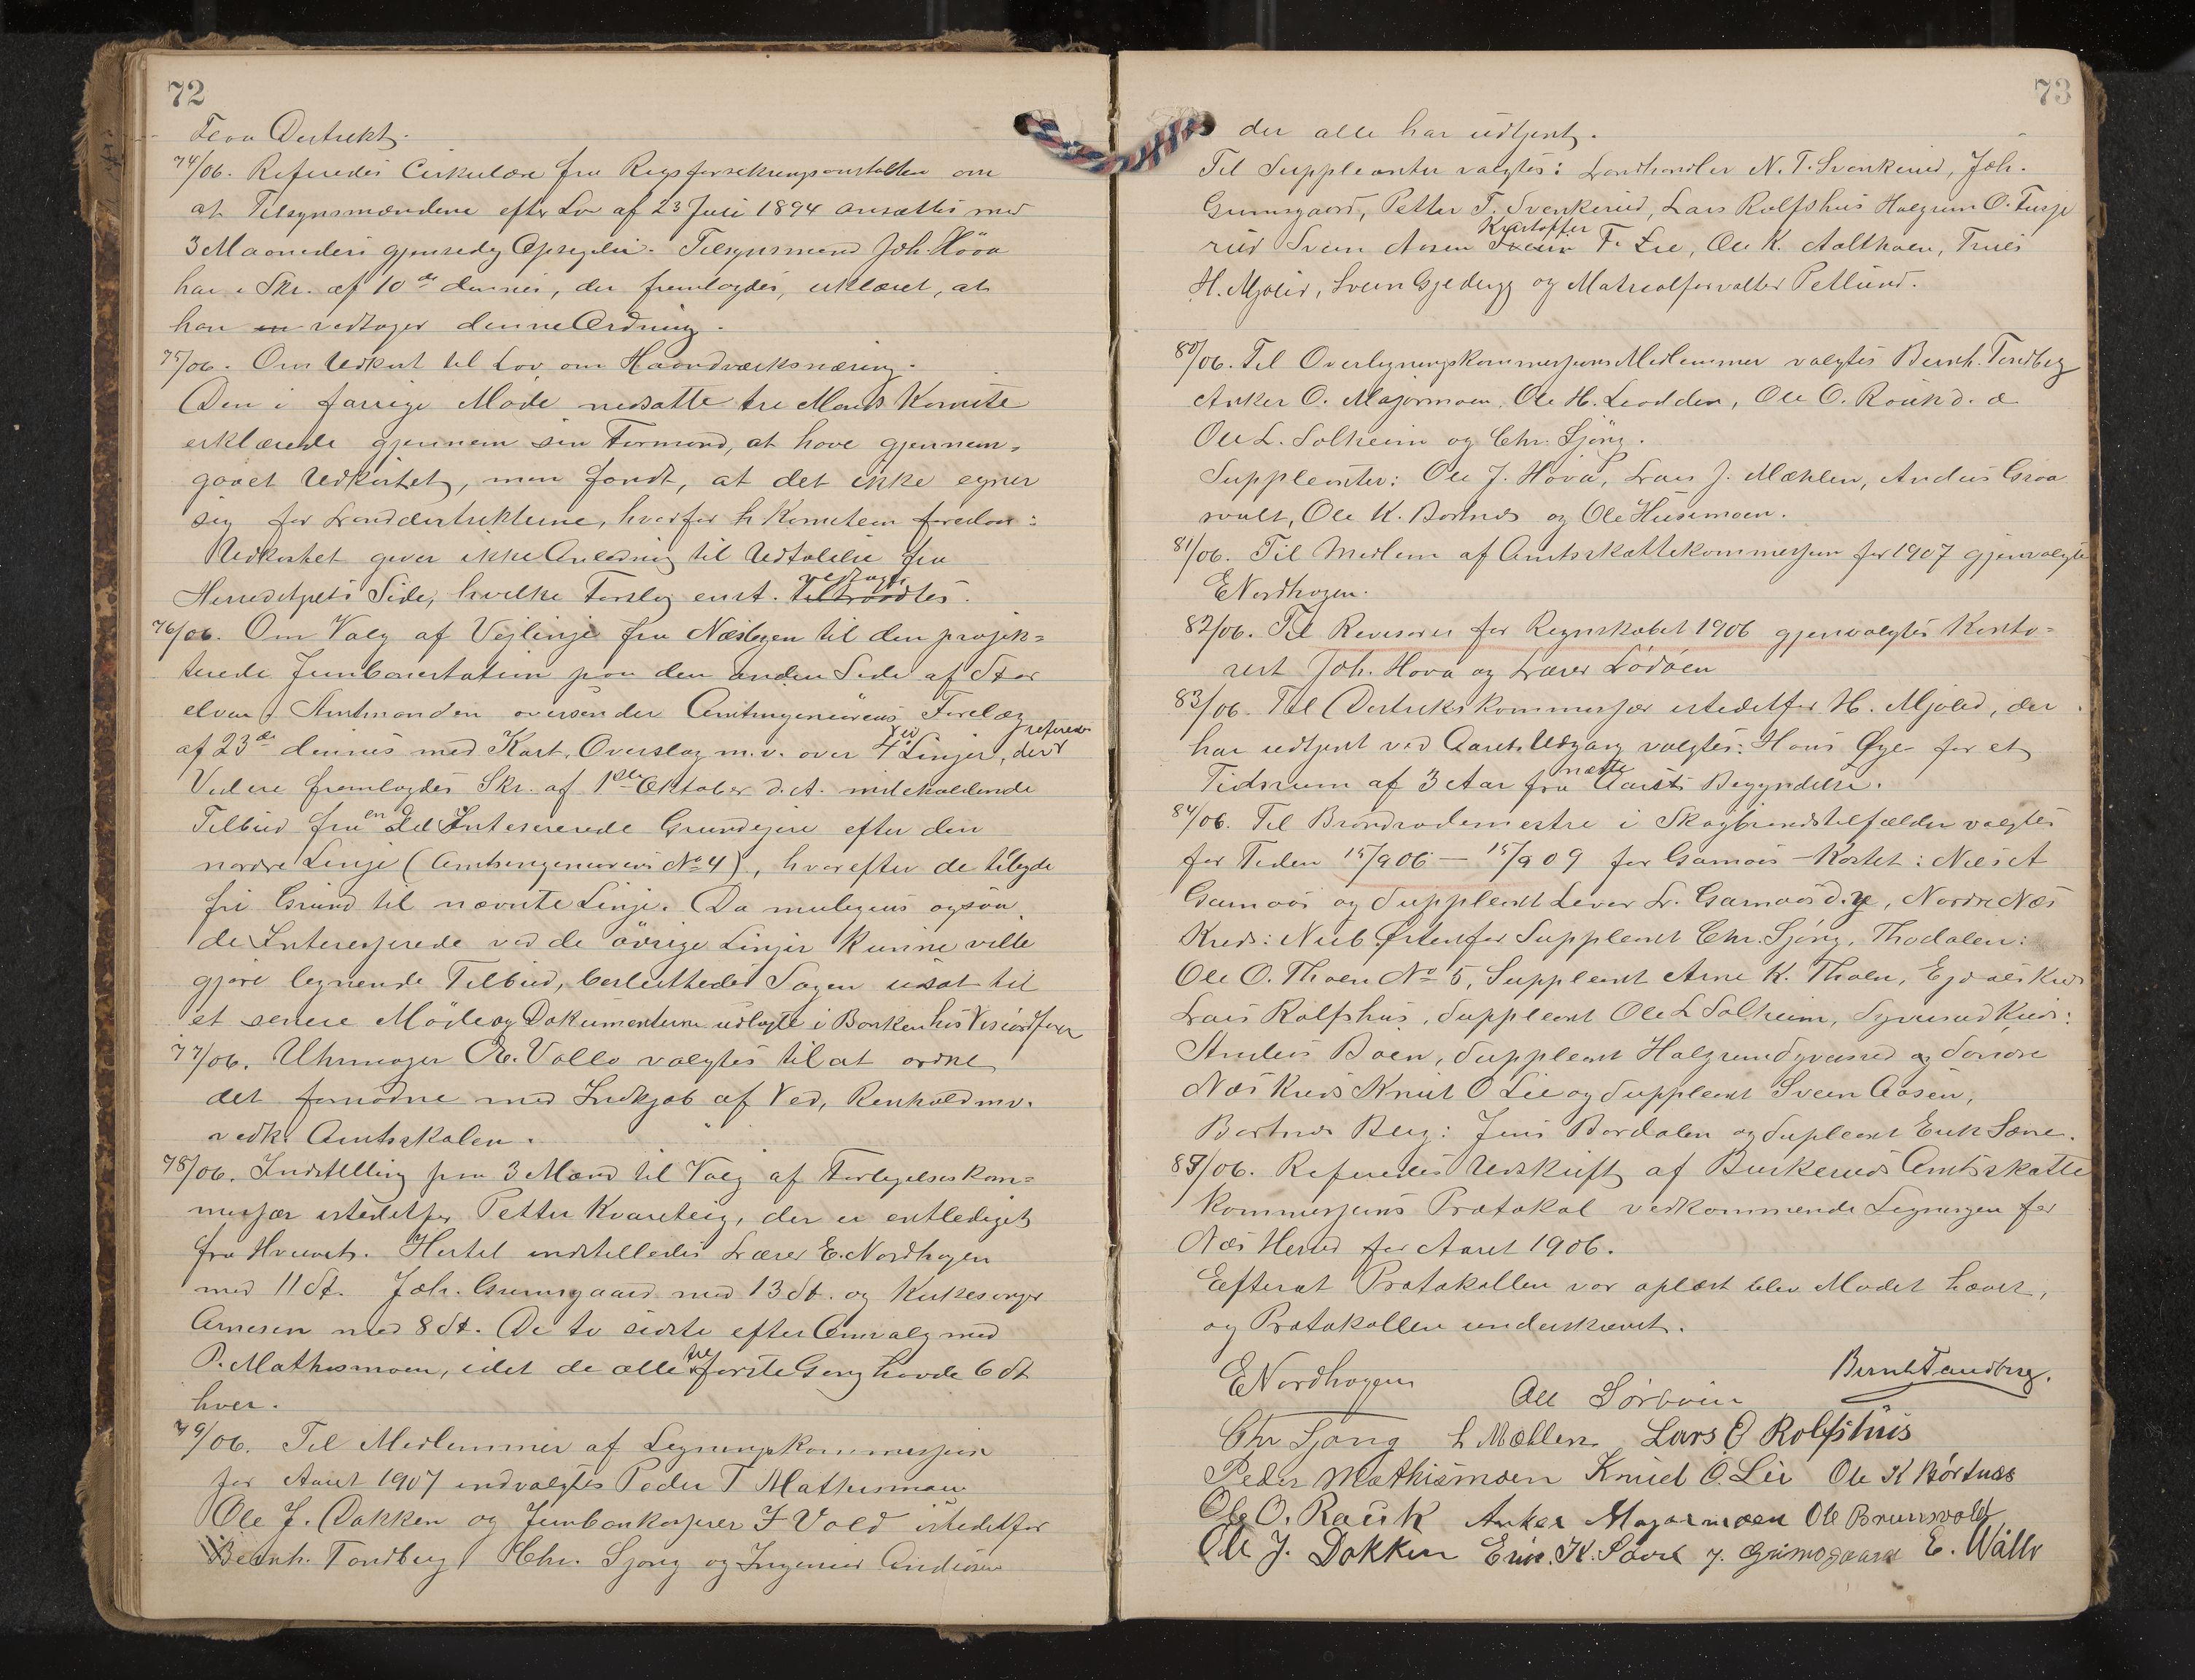 72
Flaa Distrikt.
74/06. Referedes Cirkulære fra Rigsforsikringsanstalten om
at Tilsynsmændene efter Lov af 23 Juli 1894 ansættes med
3 Maaneders gjensidig Opsigelse. Tilsynsmand Joh. Hova
har i Skr. af 10de dennes, der fremlagdes, erklæret, at
han en vedtager denne Ordning.
75/06. Om Udkast til Lov om Haandværksnæring.
Den i forrige Møde nedsatte tre Mands Komite
erklærede gjennem sin Formand, at have gjennem-
gaaet Udkastet, men fandt, at det ikke egner
sig for Landdistrikterne, hvorfor Komiteen foreslår:
Udkastet giver ikke Anledning til Udtalelse fra
Herredstyrets Side, hvilke Forslag enst. Tiltraadtes vedtoges.
76/06. Om Valg af Vejlinje fra Næsbyen til den projek-
terede Jernbanestation paa den anden Side af Stor
elven. Amtmanden oversender Amtsingeniørens Forelæg
af 23de dennes med Kart, Overslag m.v. over 4 Linjer, der refereredes
Videre fremlagdes Skr. af 1ste Oktober d.A. indeholdende
Tilbud fra en Del Interesserede Grundejere efter den
nordre Linje (Amtsingeniørens No 4), hvorefter de tilbyde
fri Grund til nævnte Linje. Da muligens ogsaa
de Interesserede ved de øvrige Linjer kunne ville
gjøre lignende Tilbud, besluttedes Sagen udsat til
et senere Møde og Dokumenterne udlagte i Banken hos Visiordfører
77/06. Uhrmager E. Vallo valgtes til at ordne
det fornødne med Indkjøb af Ved, Renhold mv.
vedk. Amtsskolen.
78/06. Indstilling paa 3 Mænd til Valg af Forligelseskom-
missær istedetfor Petter Kvarteig, der er entlediget
fra Hvervet. Hertil indstilledes Lærer E. Nordhagen
med 11 St. Joh. Grimsgaard med 13 St. og Kirkesanger
Arnesen med 8 St. De to sidste efter Omvalg med
P. Mathismoen, idet de alle tre første Gang havde 6 St
hver.
79/06. Til Medlemmer af Ligningskommissjon
for Aaret 1907 indvalgtes Peder T Mathismoen
Ole J. Dokken og Jernbankasserer F Vold istedetfor
Bernh. Tandberg, Chr. Sjong og Ingeniør Andersen
73
der alle har udtjent.
Til Suppleanter valgtes: Landhandler N. T. Svenkerud, Joh.
Grimsgaard, Petter T. Svenkerud, Lars Rolfshus Halgrim O. Turje
rud Svein Aasen Svein Kristoffer F. Lie, Ole K. Aalthaen, Truls
H. Mjølid, Svein Gjeldryg og Matrealforvalter Petlund.
80/06. Til Overligningskommisjons Medlemmer valgtes Bernh. Tandberg
Anker O. Majormoen, Ole H. Leodden, Ole O. Rauk d. æ
Ole L. Solheim og Chr. Sjong.
Suppleanter: Ole J. Hova, Lars J. Mæhlen, Anders Graa
svalt, Ole K. Bortnæs og Ole Husemoen.
81/06. Til Medlem af Amtsskattekommisjon for 1907 gjenvalgtes
E Nordhagen.
82/06. Til Revisorer for Regnskabet 1906 gjenvalgtes Konto-
rist Joh. Hova og Lærer Lødøen
83/06. Til Distrikskommissær istedetfor H. Mjølid, der
har udtjent ved Aarets Udgang valgtes: Hans Øye for et
Tidsrum af 3 Aar fra næste Aarets Begyndelse.
84/06. Til Brandrodemestre i Skogbrandstilfælder valgtes
for Tiden 15/9 06 – 15/9 09 for Garnaas-Kortet: Nils A
Garnaas og Suppleant Lever L. Garnaas d.y, Nordre Næs
Kreds: Nub Østenfor Suppleant Chr. Sjong. Thodalen:
Ole O. Thoen No 5, Suppleant Arne K. Thoen, Ejdals Kreds
Lars Rolfshus, Suppleant Ole L Solheim, Syverud Kreds:
Anders Boen, Suppleant Halgrim Syverud og Søndre
Næs Kreds Knut O Lie og Suppleant Svein Aasen,
Bortnæs Kreds: Jens Bordalen og Supleant Erik Savre.
85/06. Referedes Udskrift af Buskeruds Amtsskatte
kommisjons Protokol vedkommende Ligningen for
Næs Herred for Aaret 1906.
Efterat Protokollen var oplæst blev Mødet hævet,
og Protokollen underskrevet.
E Nordhagen Ole Sørbøen Bernh Tandberg.
Chr Sjong L Mæhlen Lars O Rolfshus
Peder Mathismoen Knud O. Lie Ole K Bortnæs
Ole O. Rauk Anker Majormoen Ole Brunsvold
Ole J. Dokken Erik. K. Savre J. Grimsgaard E. Wallo